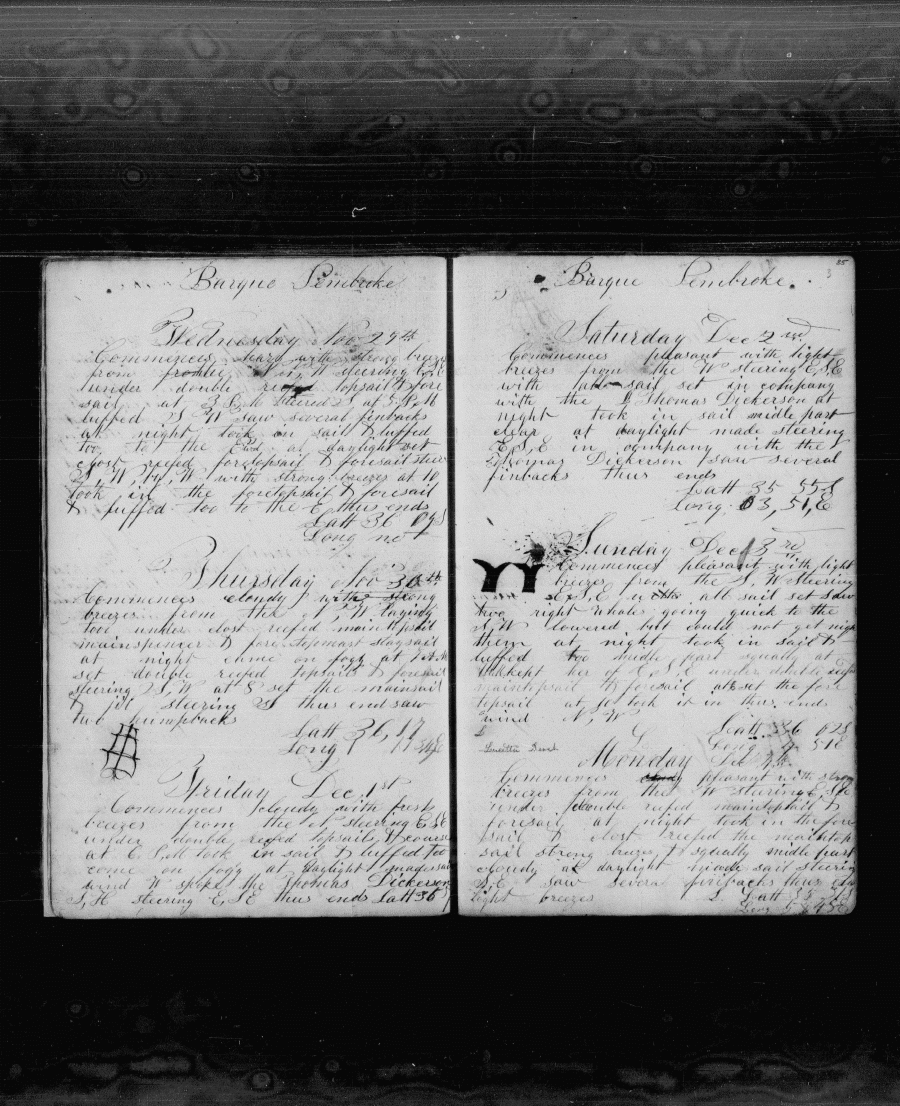 Barque Pembroke
Wednesday Nov 29th
Commences with strong breezes
from steering
under double reefed topsail & fore
sail at 3 P.M. steered S at 5 P.M
luffed S W saw several finbacks
at night took in sail & luffed
too to the at daylight set
close reefed foretopsail & foresail steer
S W by W with strong breezes at 10
took in the foretopsail & foresail
& luffed too to the E thus ends
Latt 36 09 S
Long no
Thursday Nov 30th
Commences cloudy with strong
breezes from the W laying
too under close reefed maintopsail
mainspencer & foretopmast staysail
at night came on fogy at 7 A.M
set double reefed topsails & foresail
steering S, W at 8 set the mainsail
& jib steering S thus ends saw
two humpbacks
Latt 36, 17
Long
Friday Dec 1st
Commences cloudy with fresh
breezes from the steering E, S E
under double reefed topsails & courses
at 6 P.M took in sail & luffed too
come on fogy at daylight made sail
wind W spoke the Thomas Dickerson
S, H steering E, S E thus ends Latt 36
85
3
Barque Pembroke.
Saturday Dec 2nd
Commences pleasant with light
breezes from the W steering E, S E
with sail set in company
with the Thomas Dickerson at
night took in sail middle part
clear at daylight made steering
E, S, E in company with the
Thomas Dickerson saw several
finbacks thus ends
Latt 35 55 S
Long 03, 51, E
Sunday Dec 3rd
Commences pleasant with light
breezes from the S, W steering
E, S, E with all sail set saw
two right whale going quick to the
S, W lowered but could not get nigh
them at night took in sail &
luffed too middle part squaly at
kept her of E, S, E under double reefed
maintopsail & foresail set the fore
topsail at took it in thus ends
wind N, W
Latt 36 02 S
Long 51 E
Monday Dec 4th
Commences pleasant with strong
breezes from the W steering E, S E
under double reefed maintopsail &
foresail at night took in the fore
sail & close reefed the maintop
sail strong breezes & squally middle part
cloudy at daylight made sail steering
S, E saw several finbacks thus ends
light breezes
Latt 35
Long